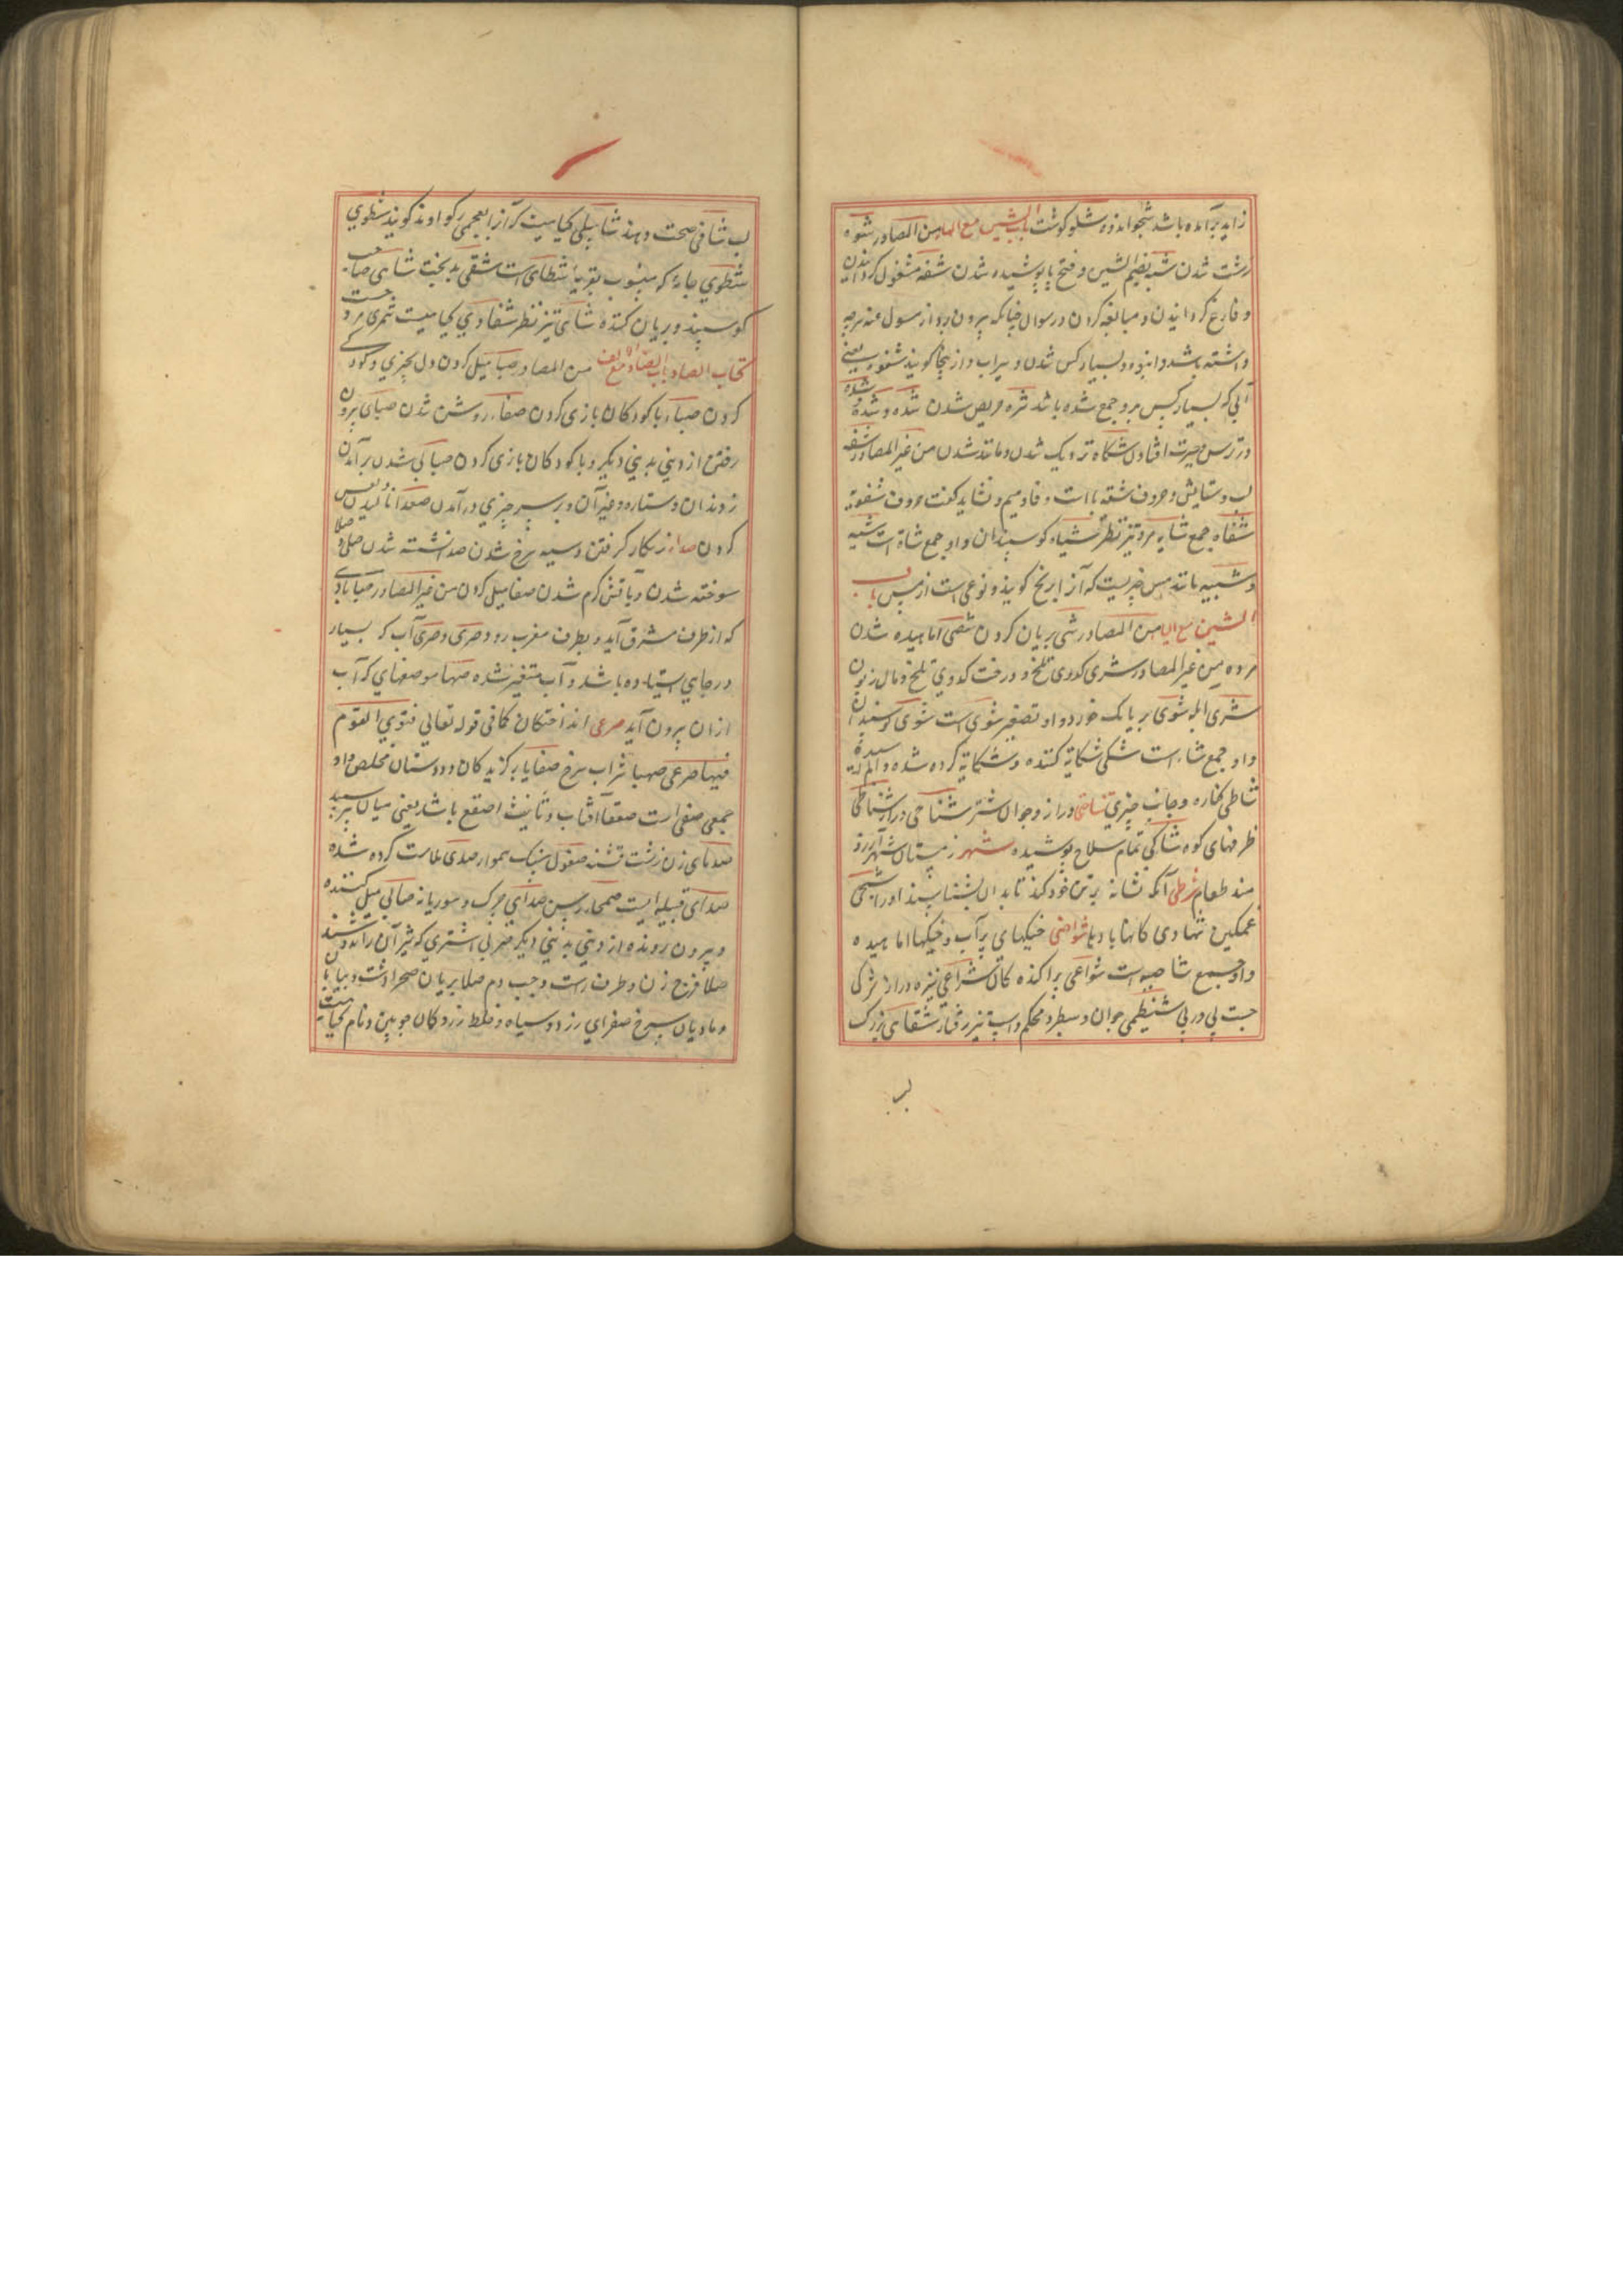 زاید برآمده باشد شجو اندوه شلو کوشت باب الشین مع الهاء من المصادر شوه
زشت شدن شبه بضم الشین و فتح با پوشیده شدن شفه مشغول کردانیدن
و فارغ کردانیدن و مبالغه کردن در سوال چنانکه بیرون رود از مسول عنه هرچه
داشته باشد و انبوه و بسیار کس شدن و بیراب و از ینجا کویند شفوه یعنی
آبی که بسیار کس برو جمع شده باشد شره حریص شدن شده و شده
در ترس حیرت افتادن شکاه نزدیک شدن و مانند شدن من غیر المصادر شفه
لب و ستایش و حروف شفه با است و فا و میم و نشاید کفت حروف شفویه
شفاه جمع شایه مرد تیز نظر شیاه کوسپندان و او جمع شاة است شبه
و شبیه مانند مس چیزیست که آنرا برنج کویند و نوعی است از مس باب
الشین مع الیا من المصادر شی بریان کردن شصی آماهیده شدن
مرده من غیر المصادر شری کدوی تلخ و درخت کدوی تلخ و مال زبون
شری ابله شوی بریانک خورد و او تصغیر شوی است شوی کوسفندان
و او جمع شاء است شکی شکایة کننده و شکایة کرده شده و الم رسیده
شاطی کناره و جانب چیزی شناحی دراز و جوال شتر شناحی دراز شناطی
طرفهای کوه شاکی تمام سلاح پوشیده شهر زمستان شهر آرزو
مند طعام شرطی آنکه نشانه بر تن خود کند تا بدان بشناسند او را شجی
غمکین تهادی کانها بادیا شواصی خیکهای پرآب و خیکها آماهیده
و او جمع شاصیه است شواعی پراکنده کان شراعی نیزه دراز شرکی
جست پی در پی شنیظمی جوان و سطبر و محکم و اسپ تیز رفتار شقای بزرک
لب
لب شافی صحت دهنده شابیلی کیاهیست که آنرا بعجمی رکواوند کویند شطوی
شطوی جامه که منسوب بقریه شطای است شقی بدبخت شاهی صاحب
کوسپند و بریان کننده شاهی تیز نظر شفاوی کیاهیست شمری مرد چست
کتاب الصاد باب الصاد مع الالف من المصادر صبا میل کردن دل بچیزی و کودکی
کردن صباء با کودکان بازی کردن صفاء روشن شدن صبای بیرون
رفتن از دینی بدینی دیکر و با کودکان بازی کردن صبا کی شدن برآمدن
دندان و ستاره و غیر آن و بر سر چیزی درآمدن صعدا نالیدن نفس
کردن صداء زنکار کرفتن و سیه سرخ شدن صدا تشنه شدن صلی و صلا
سوخته شدن و بآتش کرم شدن صفا میل کردن من غیر المصادر صبا بادی
که از طرف مشرق آید و بطرف مغرب رود صری و صری آب که بسیار
در جای استیاده باشد و آب متغیر شده صنها موضعهای که آب
از ان بیرون آید صرعی انداختکان کما فی قوله تعالی فتری القوم
فیها صرعی صهبا شراب سرخ صفایا برکزیدکان و دوستان مخلص و او
جمع صفی است صقعا آفتاب و تانیث اصقع باشد یعنی میان سر سپید
صدای زن زشت تشنه صفول سنک هموار صدی ملامت کرده شده
صدای قبیله ایست صمحا زمین صدای چرک و سوریانه صابی میل کننده
و بیرون رونده از دینی بدینی دیکر صربی اشتری کو شیر آن را ندوشند
صلا فرج زن و طرف راست و چپ دم صلا بریان صحرا دشت و بیابان
و مادیان سرخ صفرای زرد و سیاه و خلط زرد و کمان چوبین و نام کیاهیست